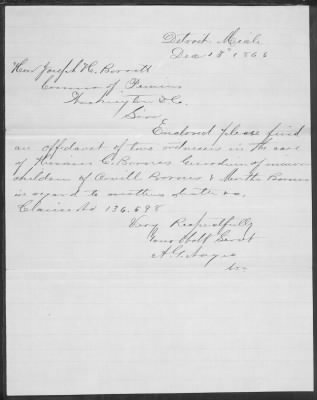 Detroit Mich
Dec 13th 1866
Hon Joseph H. Barrett
Comr of Pensions
Washington D.C.
Sir
Enclosed please find
an affidavit of two witnesses in the case
of C. Guardian of minor
children of & Martha
in regard to mothers death &c.
Claim No 136.698
Very Respectfully
Your Obdt Servt
A. G.